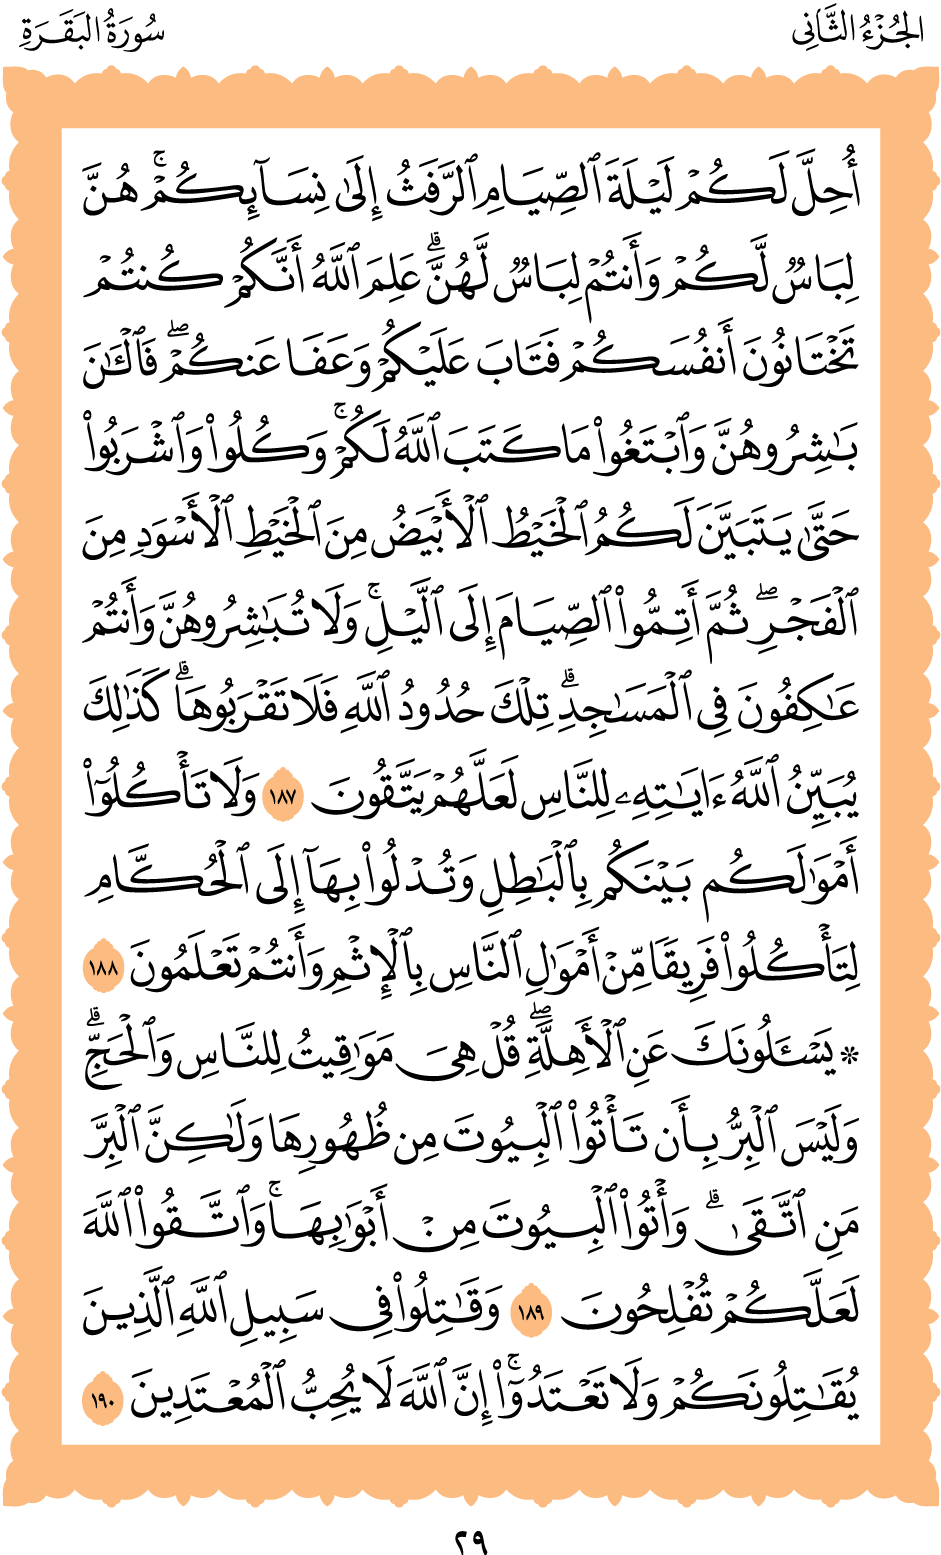 الجُزْءُ الثَّانِي
سُورَةُ البَقَرَةِ
أُحِلَّ لَكُمۡ لَيۡلَةَ ٱلصِّيَامِ ٱلرَّفَثُ إِلَىٰ نِسَآئِكُمۡۚ هُنَّ
لِبَاسٞ لَّكُمۡ وَأَنتُمۡ لِبَاسٞ لَّهُنَّۗ عَلِمَ ٱللَّهُ أَنَّكُمۡ كُنتُمۡ
تَخۡتَانُونَ أَنفُسَكُمۡ فَتَابَ عَلَيۡكُمۡ وَعَفَا عَنكُمۡۖ فَٱلۡـَٰٔنَ
بَٰشِرُوهُنَّ وَٱبۡتَغُواْ مَا كَتَبَ ٱللَّهُ لَكُمۡۚ وَكُلُواْ وَٱشۡرَبُواْ
حَتَّىٰ يَتَبَيَّنَ لَكُمُ ٱلۡخَيۡطُ ٱلۡأَبۡيَضُ مِنَ ٱلۡخَيۡطِ ٱلۡأَسۡوَدِ مِنَ
ٱلۡفَجۡرِۖ ثُمَّ أَتِمُّواْ ٱلصِّيَامَ إِلَى ٱلَّيۡلِۚ وَلَا تُبَٰشِرُوهُنَّ وَأَنتُمۡ
عَٰكِفُونَ فِي ٱلۡمَسَٰجِدِۗ تِلۡكَ حُدُودُ ٱللَّهِ فَلَا تَقۡرَبُوهَاۗ كَذَٰلِكَ
يُبَيِّنُ ٱللَّهُ ءَايَٰتِهِۦ لِلنَّاسِ لَعَلَّهُمۡ يَتَّقُونَ ١٨٧ وَلَا تَأۡكُلُوٓاْ
أَمۡوَٰلَكُم بَيۡنَكُم بِٱلۡبَٰطِلِ وَتُدۡلُواْ بِهَآ إِلَى ٱلۡحُكَّامِ
لِتَأۡكُلُواْ فَرِيقٗا مِّنۡ أَمۡوَٰلِ ٱلنَّاسِ بِٱلۡإِثۡمِ وَأَنتُمۡ تَعۡلَمُونَ ١٨٨
۞ يَسۡـَٔلُونَكَ عَنِ ٱلۡأَهِلَّةِۖ قُلۡ هِيَ مَوَٰقِيتُ لِلنَّاسِ وَٱلۡحَجِّۗ
وَلَيۡسَ ٱلۡبِرُّ بِأَن تَأۡتُواْ ٱلۡبِيُوتَ مِن ظُهُورِهَا وَلَٰكِنَّ ٱلۡبِرَّ
مَنِ ٱتَّقَىٰۗ وَأۡتُواْ ٱلۡبِيُوتَ مِنۡ أَبۡوَٰبِهَاۚ وَٱتَّقُواْ ٱللَّهَ
لَعَلَّكُمۡ تُفۡلِحُونَ ١٨٩ وَقَٰتِلُواْ فِي سَبِيلِ ٱللَّهِ ٱلَّذِينَ
يُقَٰتِلُونَكُمۡ وَلَا تَعۡتَدُوٓاْۚ إِنَّ ٱللَّهَ لَا يُحِبُّ ٱلۡمُعۡتَدِينَ ١٩٠
٢٩